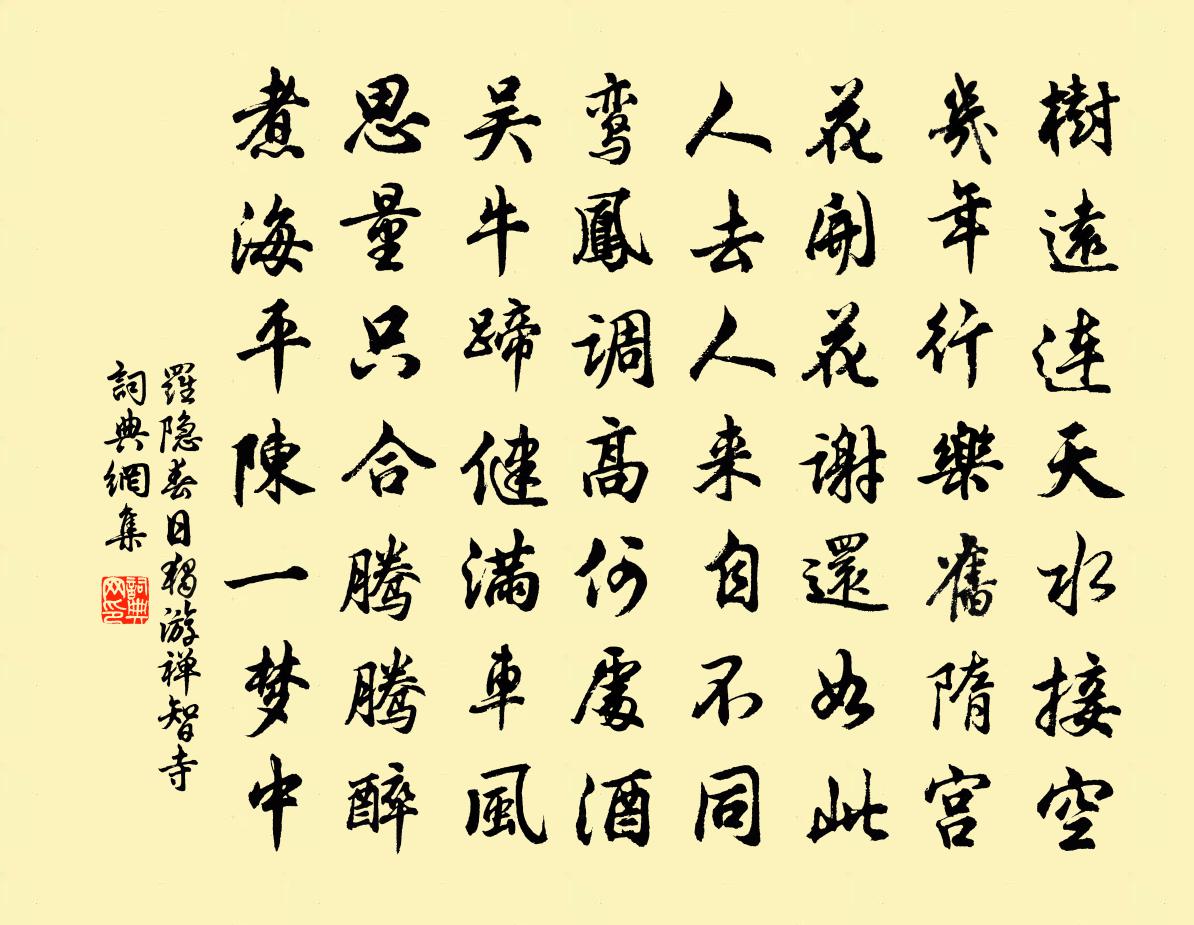 樹遠連天水接空
幾年行樂舊隋宮
花開花謝還如此
人去人来自不同
鸾鳳調高何處酒
吴牛蹄健滿車風
思量只合騰騰醉
煮海平陳一梦中
羅隐春日獨游禅智寺
詞典網集
詞典網印